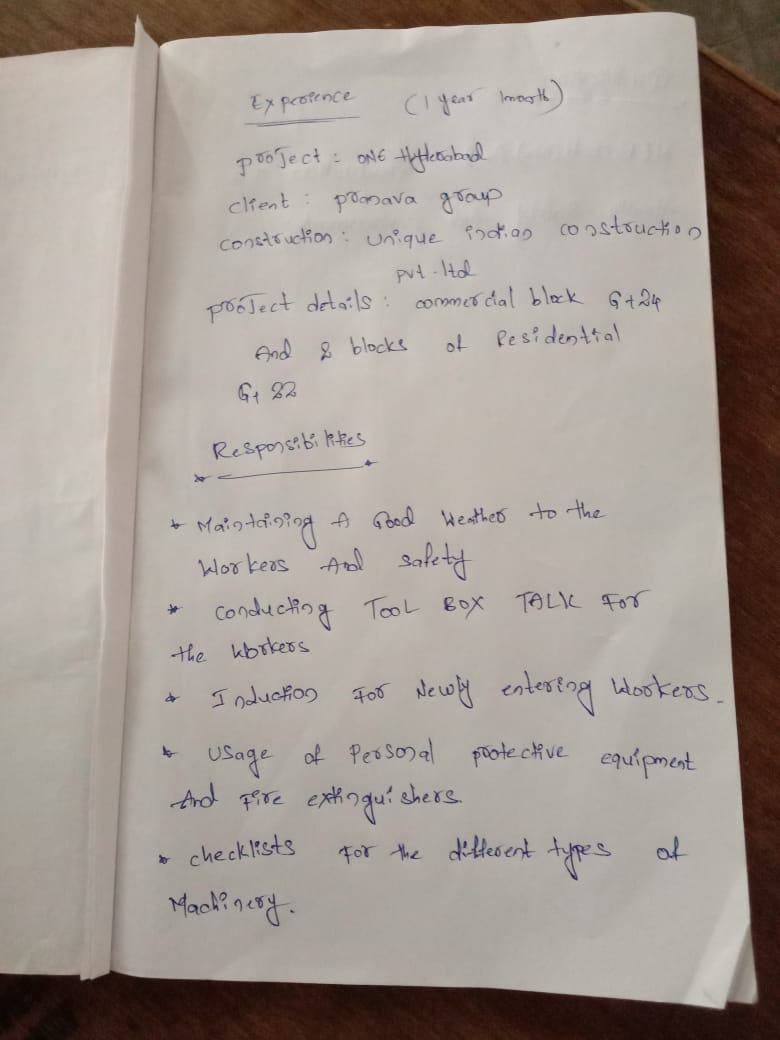 Experience (1 year 1month)
project : ONE Hyderabad
client : pranava group
construction : unique indian construction
pvt. ltd
project details : commercial block G+24
And 2 blocks of Residential
G+ 22
Responsibilities
* Maintaining A Good Weather to the
Workers And safety
* conducting TOOL BOX TALK For
the Workers
* Induction For Newly entering Workers.
* Usage of Personal protective equipment
And Fire extinguishers.
* checklists For the different types of
Machinery.